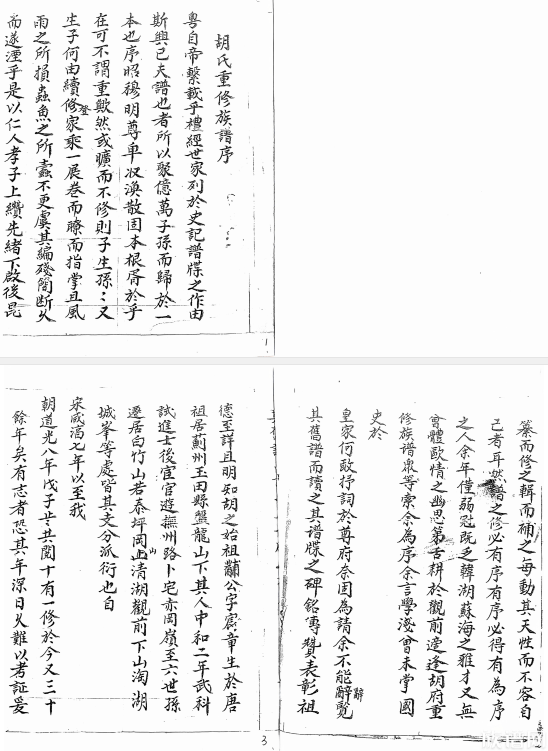 胡氏重修族譜序
粤自帝繫載乎禮經世家列於史記譜牒之作由
斯興已夫譜也者所以聚億萬子孫而歸於一
本也序昭穆明尊卑收渙散固本根胥於乎
在可不謂重歟然或曠而不修則子生孫〻又
生子何由續修登家乘一展卷而瞭而指掌且風
雨之所損蟲魚之所蠹不更虞其編殘簡断久
而遂湮乎是以仁人孝子上纘先緒下啟後昆
纂而修之輯而補之每動其天性而不容自
己者耳然譜之修必有序有序必得有為序
之人余年僅弱冠既乏韓湖蘇海之雅才又無
曾體歐情之幽思第舌耕於觀前逢逢胡府重
修族譜眾等索余為序余言學淺曾未掌國
史於
皇家何敢抒詞於尊府奈因為請余不能辭辭覽
其舊譜而讀之其譜牒之碑銘專贊表彰祖
德至詳且明知胡之始祖黼公字爵章生於唐
祖居薊州玉田縣蟹龍山下其人中和二年武科
試進士後宦官遊撫州路卜宅赤岡嶺至六世孫
遷居白竹山若泰坪岡山上清湖觀前下山淘湖
城峯等處皆其支分派衍也自
宋咸酒七年以至我
朝道光八年戊子共閱十有一修於今又三十
餘年矣有志者恐其年深日久難以考証爰
3